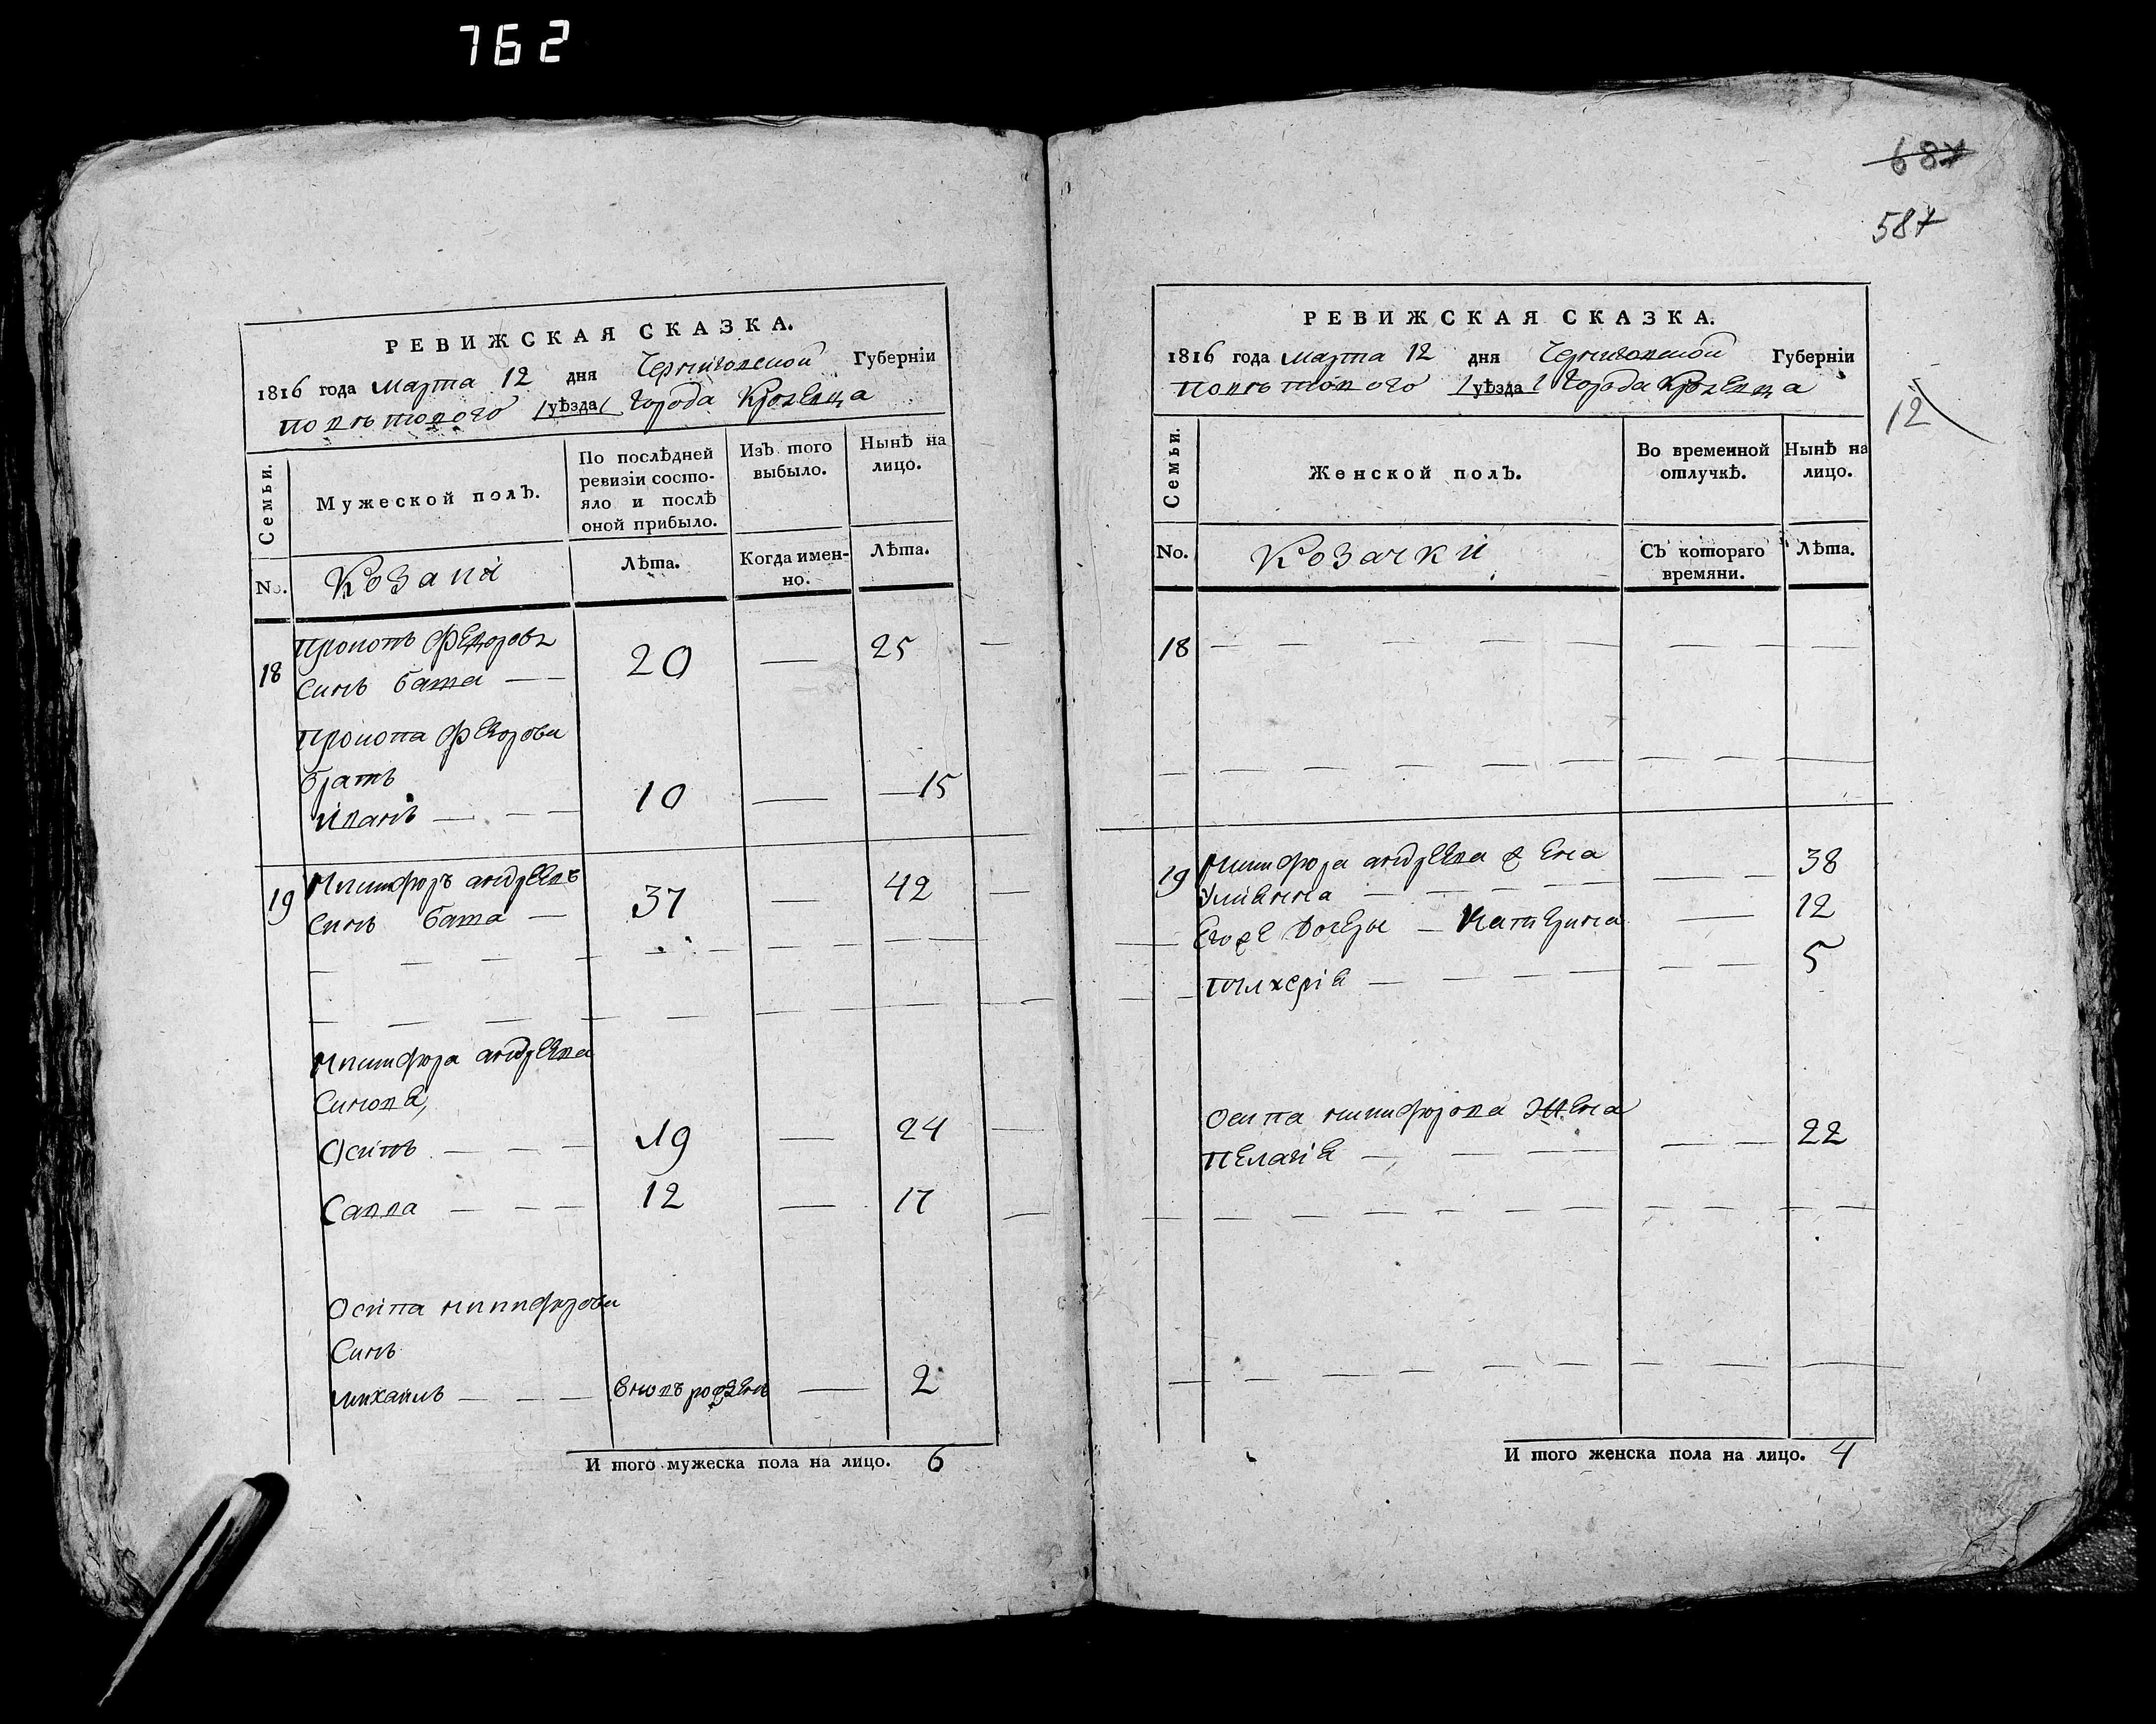 762
687
587
12
РЕВИЖСКАЯ СКАЗКА.
1816 года Марта 12 дня Черниговской Губернїи
повѣтового /уѣзда/ Города Кролевца
Семьи.
Мужеской полъ.
По послѣдней
ревизїи состо-
яло и послѣ
оной прибыло.
Изъ того
выбыло.
Нынѣ на
лицо.
No.
Козаки
Лѣта.
Когда имен-
но.
Лѣта.
18 Прокопъ Федоровъ 20 — 25
Синъ бата
Прокопа Федорова
братъ
Иванъ — 10 — 15
19 Никифоръ андреевъ 37 — 42
Синъ бата
Никифора андреева
Синовя,
Осипъ — 19 — 24
Савва — 12 — 17
Осипа никифорова
Синъ
михаилъ — вновъ рожденъ — 2
И того мужеска пола на лицо. 6
РЕВИЖСКАЯ СКАЗКА.
1816 года Марта 12 дня Черниговской Губернїи
повѣтового /уѣзда/ Города Кролевца
Семьи.
Женской полъ.
Во временной
отлучкѣ.
Нынѣ на
лицо.
No.
Козачки
Съ котораго
времяни.
Лѣта.
18
19 Никифора андреева жена 38
Улияна
Егоже дочеры — Катерина 12
пулхерїя — 5
Осипа никифорова жена
пелагїя — 22
И того женска пола на лицо. 4